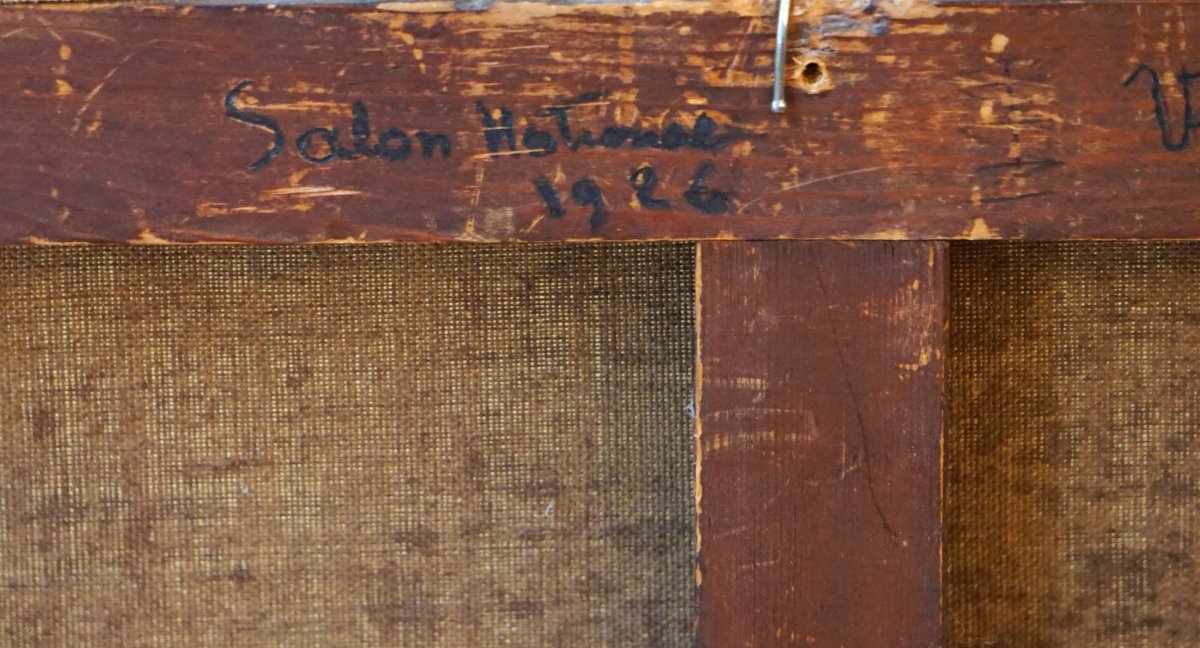 Salon National
1926